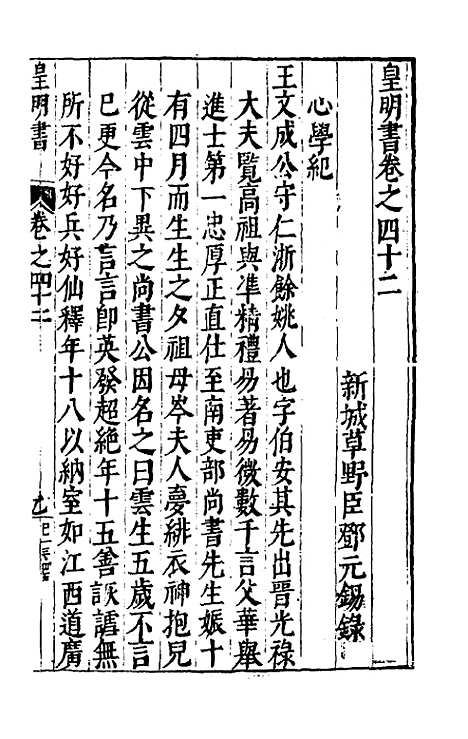 皇明書卷之四十二
新城草野臣鄧元錫錄
心學紀
王文成公守仁浙餘姚人也字伯安其先出晉光祿
大夫覽高祖與準精禮易著易微數千言父華舉
進士第一忠厚正直仕至南吏部尚書先生娠十
有四月而生生之夕祖母岑夫人夢緋衣神抱兒
從雲中下異之尚書公因名之曰雲生五歲不言
已更今名乃言言即英發超絕年十五善詼謔無
所不好好兵好仙釋年十八以納室如江西道廣
皇明書
卷之四十二